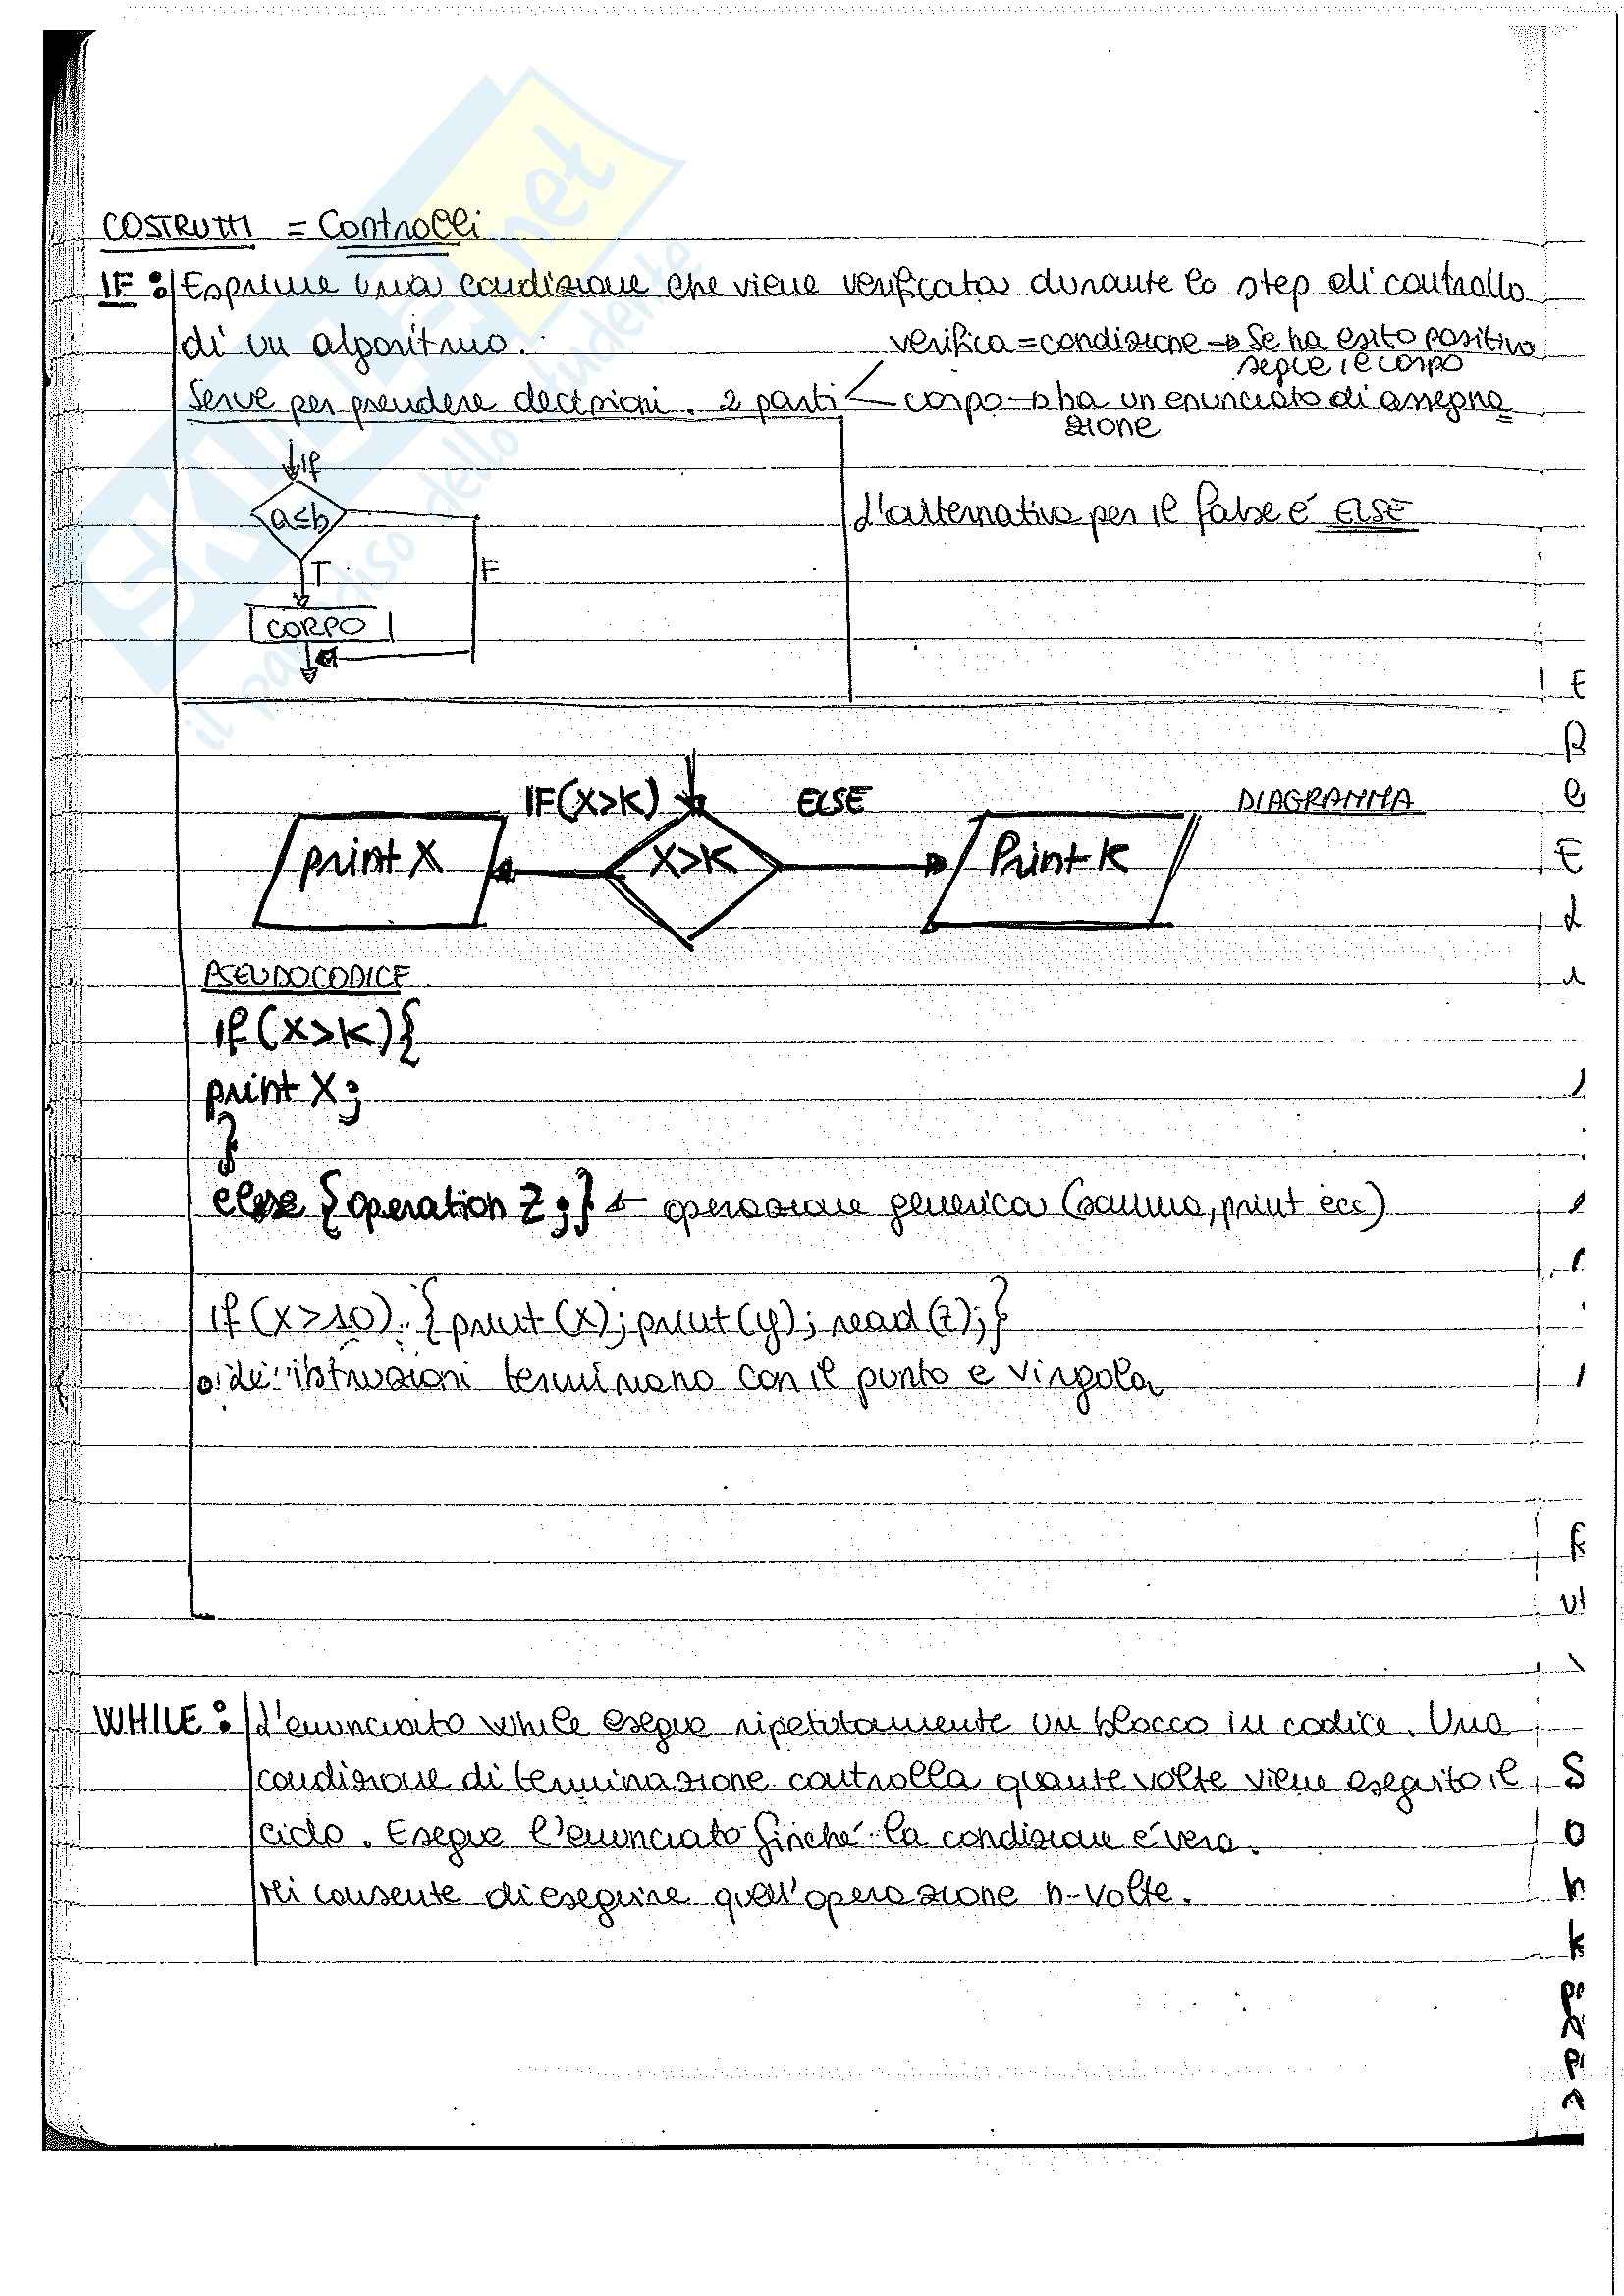 COSTRUTTI = Controlli
IF: Esprime una condizione che viene verificata durante lo step di controllo
di un algoritmo.
verifica = condizione → Se ha esito positivo
segue il corpo
Serve per prendere decisioni. 2 parti
corpo → ha un enunciato di assegna=
zione
if
a≤b
T
F
CORPO
L'alternativa per il false é ELSE
IF(X>K)
ELSE
DIAGRAMMA
print X
X>K
Print K
PSEUDOCODICE
if (X>K){
print X;
}
else {operation Z;} ← operazione generica (somma, print ecc)
if (X>10) {print(X); print(y); read(z);}
• Le istruzioni terminano con il punto e virgola
WHILE: L'enunciato while esegue ripetutamente un blocco in codice. Una
condizione di terminazione controlla quante volte viene eseguito il
ciclo. Esegue l'enunciato finché la condizione é vera.
Mi consente di eseguire quell'operazione n-volte.
SKUOLA.net
il paradiso dello studente